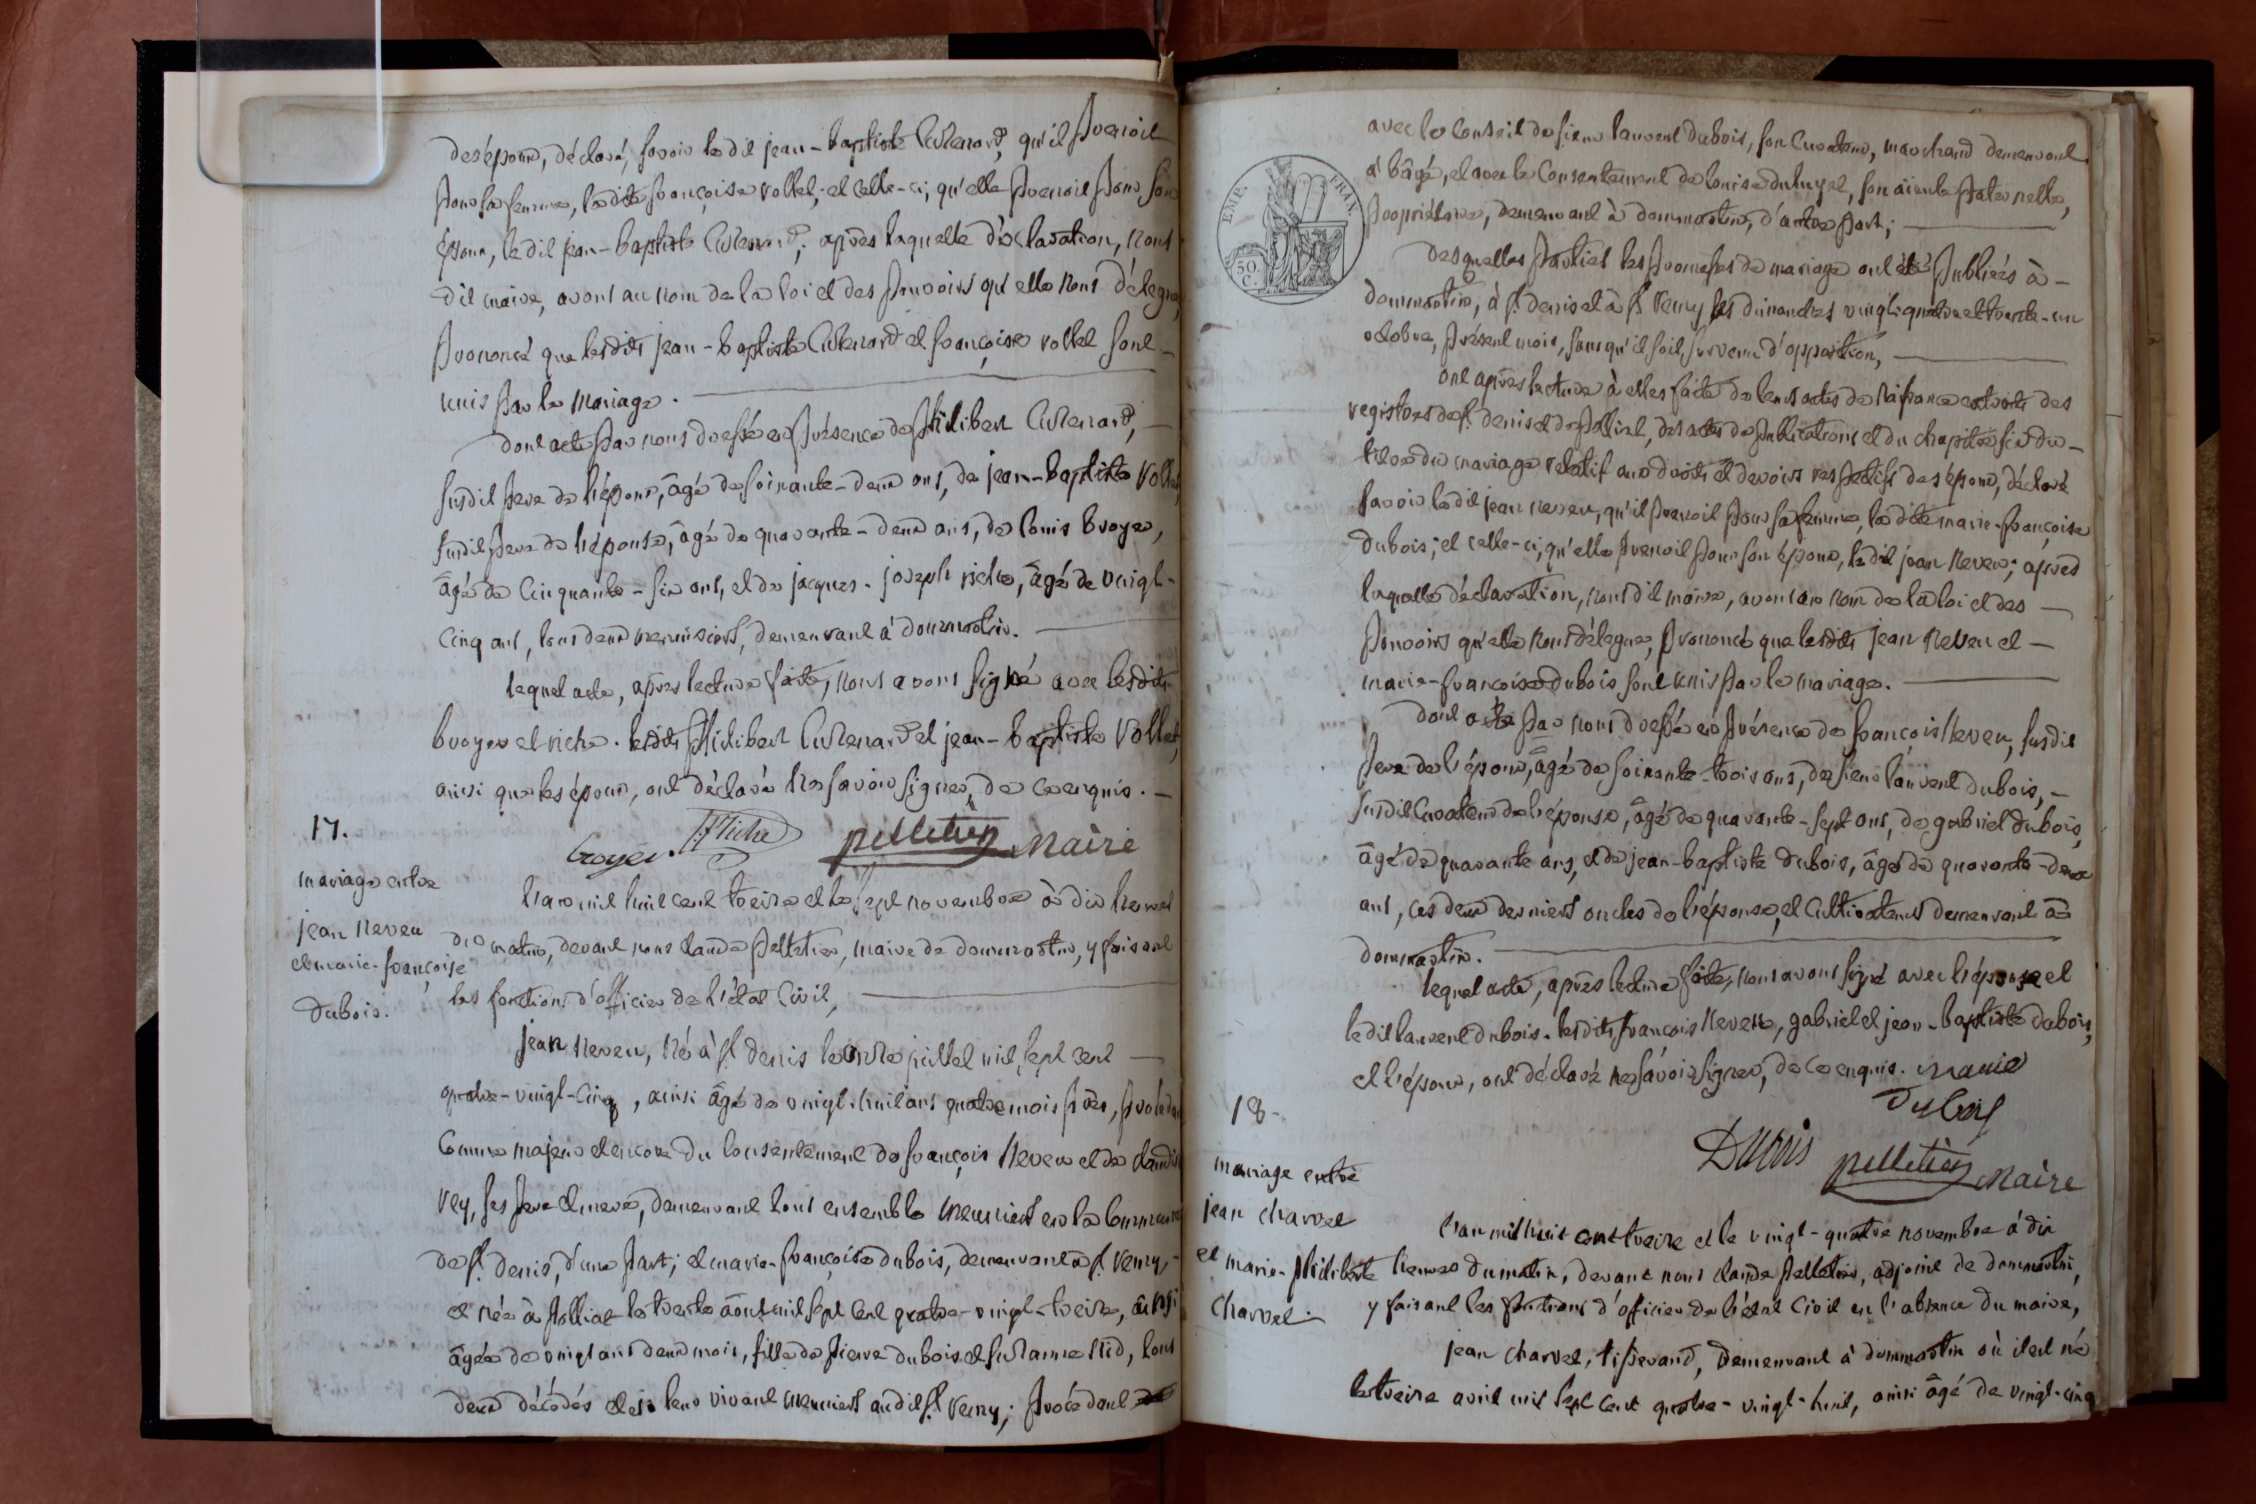 des époux, déclaré, savoir le dit jean-baptiste Curenard, qu'il prenoit
pour sa femme, la dite françoise vollet; et celle-ci, qu'elle prenoit pour son
époux, le dit jean-baptiste Curenard; après laquelle déclaration, nous
dit maire, avons au nom de la loi et des pouvoirs qu'elle nous délegue,
prononcé que lesdits jean-baptiste Curenard et françoise vollet sont
unis par le mariage.
dont acte par nous dressé en présence de philibert Curenard,
susdit pere de l'époux, âgé de soixante-deux ans, de jean-baptiste Vollet,
susdit pere de l'épouse, âgé de quarante-deux ans, de louis broyer,
âgé de Cinquante-six ans, et de jacques-joseph riche, âgé de vingt-
Cinq ans, tous deux menuisiers, demeurant à dommartin.
lequel acte, après lecture faite, nous avons signé avec lesdits
broyer et riche. lesdits philibert Curenard et jean-baptiste Vollet,
ainsi que les époux, ont déclaré ne savoir signer, de ce enquis.
broyer. JJ Riche pelletier Maire
17.
mariage entre
jean neveu
et marie-françoise
dubois.
l'an mil huit cent treize et le sept novembre à dix heures
du matin, devant nous claude pelletier, maire de dommartin, y faisant
les fonctions d'officier de l'état Civil,
jean neveu, né à st. denis le onze juillet mil sept cent
quatre-vingt-cinq, ainsi âgé de vingt-huit ans quatre mois près, procédant
Comme majeur et encore du Consentement de françois Neveu et de claudine
rey, ses pere et mere, demeurant tous ensemble meuniers en la commune
de st. denis, d'une part; et marie-françoise dubois, demeurant à st. remy,
et née à polliat le trente août mil sept cent quatre-vingt-treize, ainsi
âgée de vingt ans deux mois, fille de pierre dubois et suzanne Nid, tous
deux décédés et de leur vivant meuniers audit st. remy; procédant
avec le Conseil de sieur laurent dubois, son Curateur, marchand demeurant
à bâgé, et avec le Consentement de louise duhuyet, son aïeule paternelle,
propriétaire, demeurant à dommartin, d'autre part;
EMP. FRAN.
50 C.
desquelles parties les promesses de mariage ont été publiées à
dommartin, à st. denis et à st. remy les dimanches vingt-quatre et trente-un
octobre, présent mois, sans qu'il soit survenu d'opposition,
ont après lecture à elles faite de leurs actes de naissance extraits des
registres de st. denis et de polliat, des actes de publications et du chapitre six du
titre du mariage relatif aux droits et devoirs respectifs des époux, déclaré
savoir le dit jean neveu, qu'il prenoit pour sa femme, la dite marie-françoise
dubois; et celle-ci, qu'elle prenoit pour son époux, le dit jean neveu; après
laquelle déclaration, nous dit maire, avons au nom de la loi et des
pouvoirs qu'elle nous délegue, prononcé que lesdits jean neveu et
marie-françoise dubois sont unis par le mariage.
dont acte par nous dressé en présence de françois Neveu, susdit
pere de l'époux, âgé de soixante-trois ans, de sieur laurent dubois,
susdit Curateur de l'épouse, âgé de quarante-sept ans, de gabriel dubois,
âgé de quarante ans, et de jean-baptiste dubois, âgé de quarante-deux
ans, ces deux derniers oncles de l'épouse, et Cultivateurs demeurant à
dommartin.
lequel acte, après lecture faite, nous avons signé avec l'épouse et
le dit laurent dubois. lesdits françois neveu, gabriel et jean-baptiste dubois,
et l'époux, ont déclaré ne savoir signer, de ce enquis. marie
dubois
Dubois pelletier Maire
18.
mariage entre
jean charvet
et marie-philiberte
Charvet.
l'an mil huit cent treize et le vingt-quatre novembre à dix
heures du matin, devant nous claude pelletier, adjoint de dommartin,
y faisant les fonctions d'officier de l'état Civil en l'absence du maire,
jean charvet, tisserand, demeurant à dommartin où il est né
le treize avril mil sept cent quatre-vingt-huit, ainsi âgé de vingt-cinq